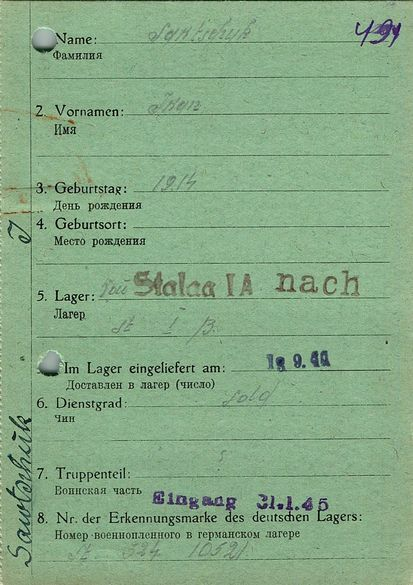 491
Name:
Фамилия
2. Vornamen: Iwan
Имя
3. Geburtstag: 1914
День рождения
4. Geburtsort:
Место рождения
5. Lager: Von Stalag IA nach
Лагер St I B
Im Lager eingeliefert am: 18 9. 41
Доставлен в лагер (число)
6. Dienstgrad: Sold
Чин
7. Truppenteil:
Воинская часть Eingang 31.1.45
8. Nr. der Erkennungsmarke des deutschen Lagers:
Номер военнопленного в германском лагере
St 10521
Sawtschuk J